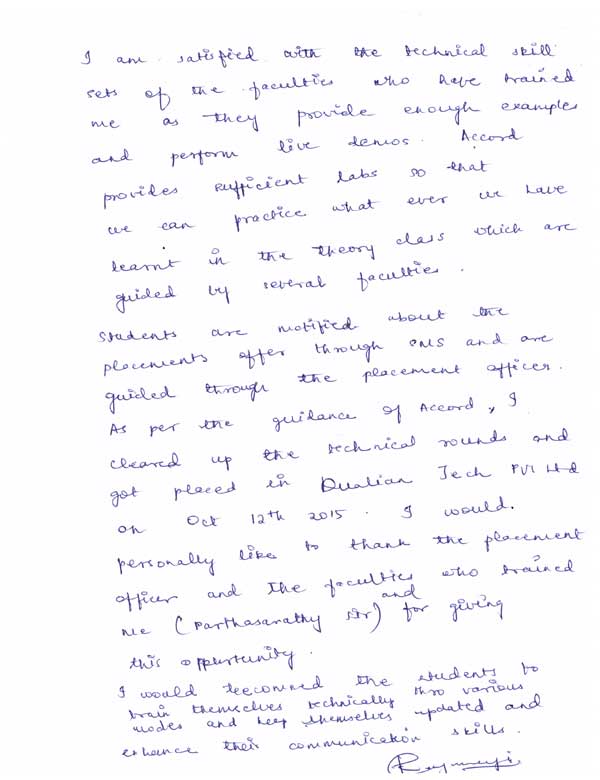 I am satisfied with the technical skill
sets of the faculties who have trained
me as they provide enough examples
and perform live demos. Accord
provides sufficient labs so that
we can practice what ever we have
learnt in the theory class which are
guided by several faculties.
Students are notified about the
placements offer through SMS and are
guided through the placement officer.
As per the guidance of Accord, I
cleared up the technical rounds and
got placed in Dualian Tech PVT Ltd
on Oct 12th 2015. I would.
personally like to thank the placement
officer and the faculties who trained
me (Parthasarathy sir) and for giving
this oppurtunity.
I would the students to
train themselves technically thro various
modes and keep themselves updated and
enhance their communication skills.